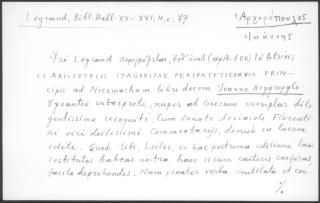 Legrand, Bibl. Hell. XV-XVI, 4, σ. 79
Ἀργυρόπουλος
Ἰωάννης
Legrand περιγράφει,
« ARISTOTELIS STAGIRITAE PERIPATETICORVM PRIN-
cipis ad Nicomachum libri decem Joanne Argyropylo
Byzantio interprete, nuper ad Grecum exemplar dili-
gentissime recogniti. Cum Donati Acciaioli Florenti-
ni viri doctissimi Commentariis, denuo in lucem
editi. Quod tibi, Lector, ex hac postrema editione loca
restitutos habeas nostra haec si cum caeteris conferas,
facile deprehendes. Nam praeter verba mutilata et con-
%.